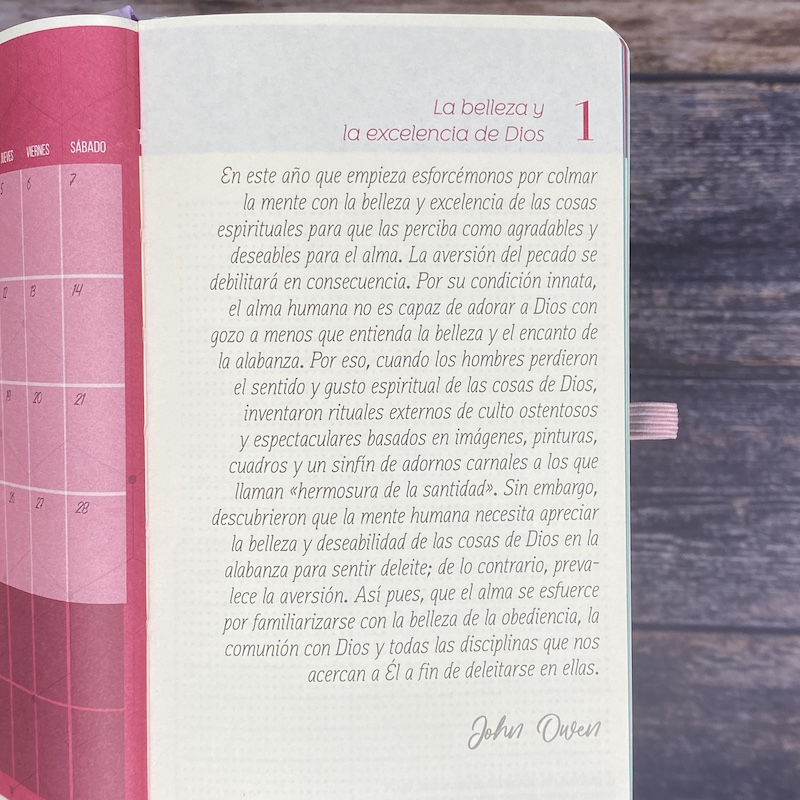 JUEVES VIERNES SÁBADO
5 6 7
12 13 14
19 20 21
26 27 28
La belleza y
la excelencia de Dios
1
En este año que empieza esforcémonos por colmar
la mente con la belleza y excelencia de las cosas
espirituales para que las perciba como agradables y
deseables para el alma. La aversión del pecado se
debilitará en consecuencia. Por su condición innata,
el alma humana no es capaz de adorar a Dios con
gozo a menos que entienda la belleza y el encanto de
la alabanza. Por eso, cuando los hombres perdieron
el sentido y gusto espiritual de las cosas de Dios,
inventaron rituales externos de culto ostentosos
y espectaculares basados en imágenes, pinturas,
cuadros y un sinfín de adornos carnales a los que
llaman «hermosura de la santidad». Sin embargo,
descubrieron que la mente humana necesita apreciar
la belleza y deseabilidad de las cosas de Dios en la
alabanza para sentir deleite; de lo contrario, preva-
lece la aversión. Así pues, que el alma se esfuerce
por familiarizarse con la belleza de la obediencia, la
comunión con Dios y todas las disciplinas que nos
acercan a Él a fin de deleitarse en ellas.
John Owen